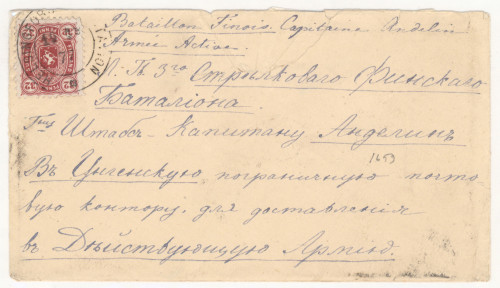 Bataillon Finois. Capitaine Andelin
Armée Active.
Л. Гв. 3го Стрѣлковаго Финскаго
Баталіона.
Гну Штабсъ-Капитану Анделинъ
1653
Въ Унгенскую пограничную почто
вую контору, для доставленія
въ Дѣйствующую Армію.